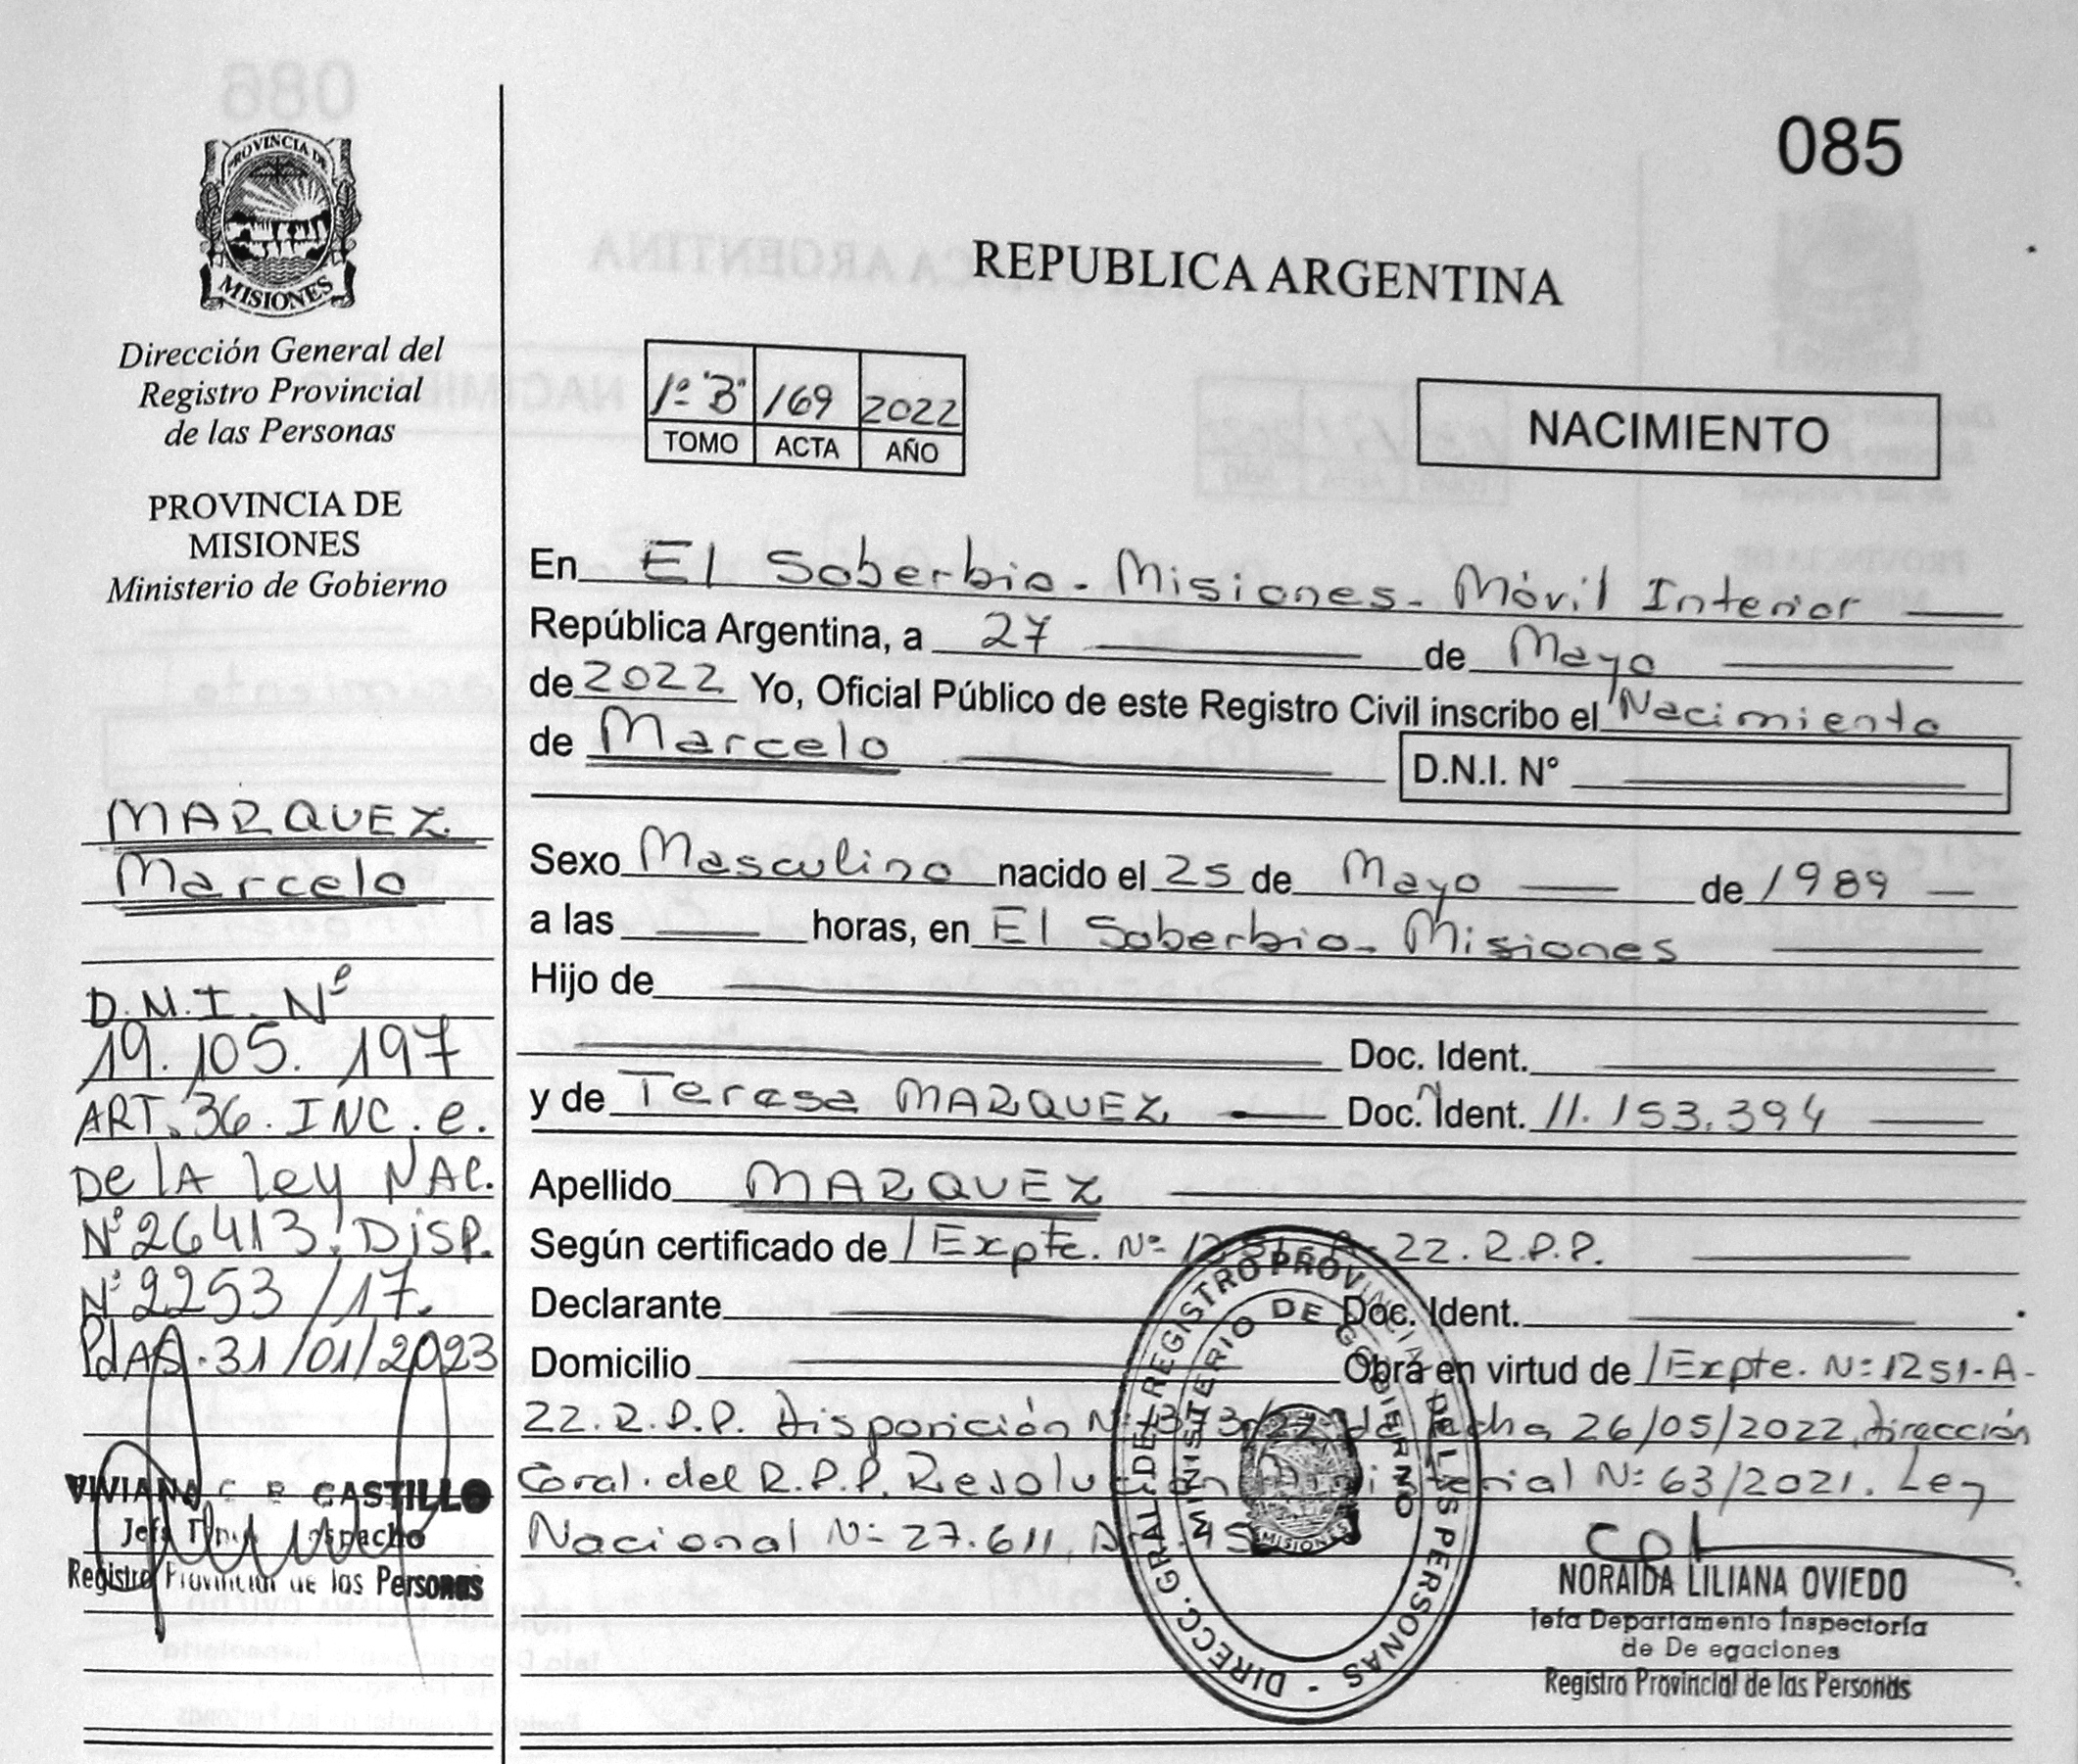 085
PROVINCIA DE
MISIONES
Dirección General del
Registro Provincial
de las Personas
PROVINCIA DE
MISIONES
Ministerio de Gobierno
MARQUEZ
Marcelo
D.N.I. Nº
19.105.197
ART. 36. INC. e.
De lA ley NAC.
Nº 26413. Disp.
Nº 2253/17.
PdAS. 31/01/2023
VIVIANA CASTILLO
Registro Provincial de las Personas
REPUBLICA ARGENTINA
1º "B" 169 2022
TOMO ACTA AÑO
NACIMIENTO
En El Soberbio - Misiones - Móvil Interior
República Argentina, a 27 de Mayo
de 2022 Yo, Oficial Público de este Registro Civil inscribo el Nacimiento
de Marcelo D.N.I. N°
Sexo Masculino nacido el 25 de Mayo de 1989
a las horas, en El Soberbio - Misiones
Hijo de
Doc. Ident.
y de Teresa MARQUEZ Doc. Ident. 11.153.394
Apellido MARQUEZ
Según certificado de Expte. Nº 22. R.P.P.
Declarante Doc. Ident.
Domicilio Obra en virtud de Expte. Nº 1251-A-
22. R.P.P. Disposición fecha 26/05/2022, Dirección
Gral. del R.P.P. Resolución Ministerial Nº 63/2021. Ley
Nacional Nº 27.611,
DIRECC. GRAL. DEL REGISTRO PROVINCIAL DE LAS PERSONAS
MINISTERIO DE GOBIERNO
MISIONES
NORAIDA LILIANA OVIEDO
Jefa Departamento Inspectoría
de De egaciones
Registro Provincial de las Personas